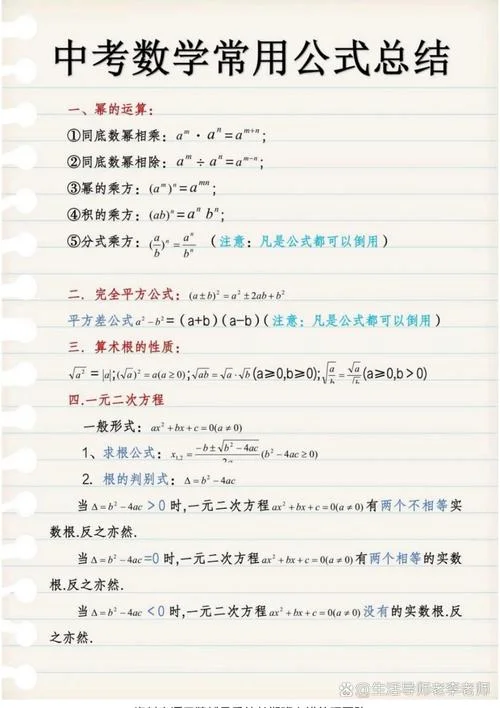 中考数学常用公式总结
一、幂的运算:
①同底数幂相乘: aᵐ · aⁿ = aᵐ⁺ⁿ;
②同底数幂相除: aᵐ ÷ aⁿ = aᵐ⁻ⁿ;
③幂的乘方: (aᵐ)ⁿ = aᵐⁿ;
④积的乘方: (ab)ⁿ = aⁿ bⁿ;
⑤分式乘方: (a/b)ⁿ = aⁿ/bⁿ (注意: 凡是公式都可以倒用)
二. 完全平方公式: (a±b)² = a² ± 2ab + b²
平方差公式 a² − b² = (a+b)(a−b)(注意: 凡是公式都可以倒用)
三. 算术根的性质:
√a² = |a|; (√a)² = a(a≥0); √ab = √a · √b (a≥0,b≥0); √(a/b) = √a/√b (a≥0,b>0)
四.一元二次方程
一般形式: ax² + bx + c = 0(a≠0)
1、求根公式: x₁,₂ = (−b±√(b²−4ac))/2a (b²−4ac≥0)
2. 根的判别式: Δ = b² − 4ac
当 Δ = b² − 4ac >0 时,一元二次方程 ax² + bx + c = 0(a≠0) 有两个不相等实
数根.反之亦然.
当 Δ = b² − 4ac =0 时,一元二次方程 ax² + bx + c = 0(a≠0) 有两个相等的实数
根.反之亦然.
当 Δ = b² − 4ac <0 时,一元二次方程 ax² + bx + c = 0(a≠0) 没有的实数根.反
之亦然.
@生活导师老李老师